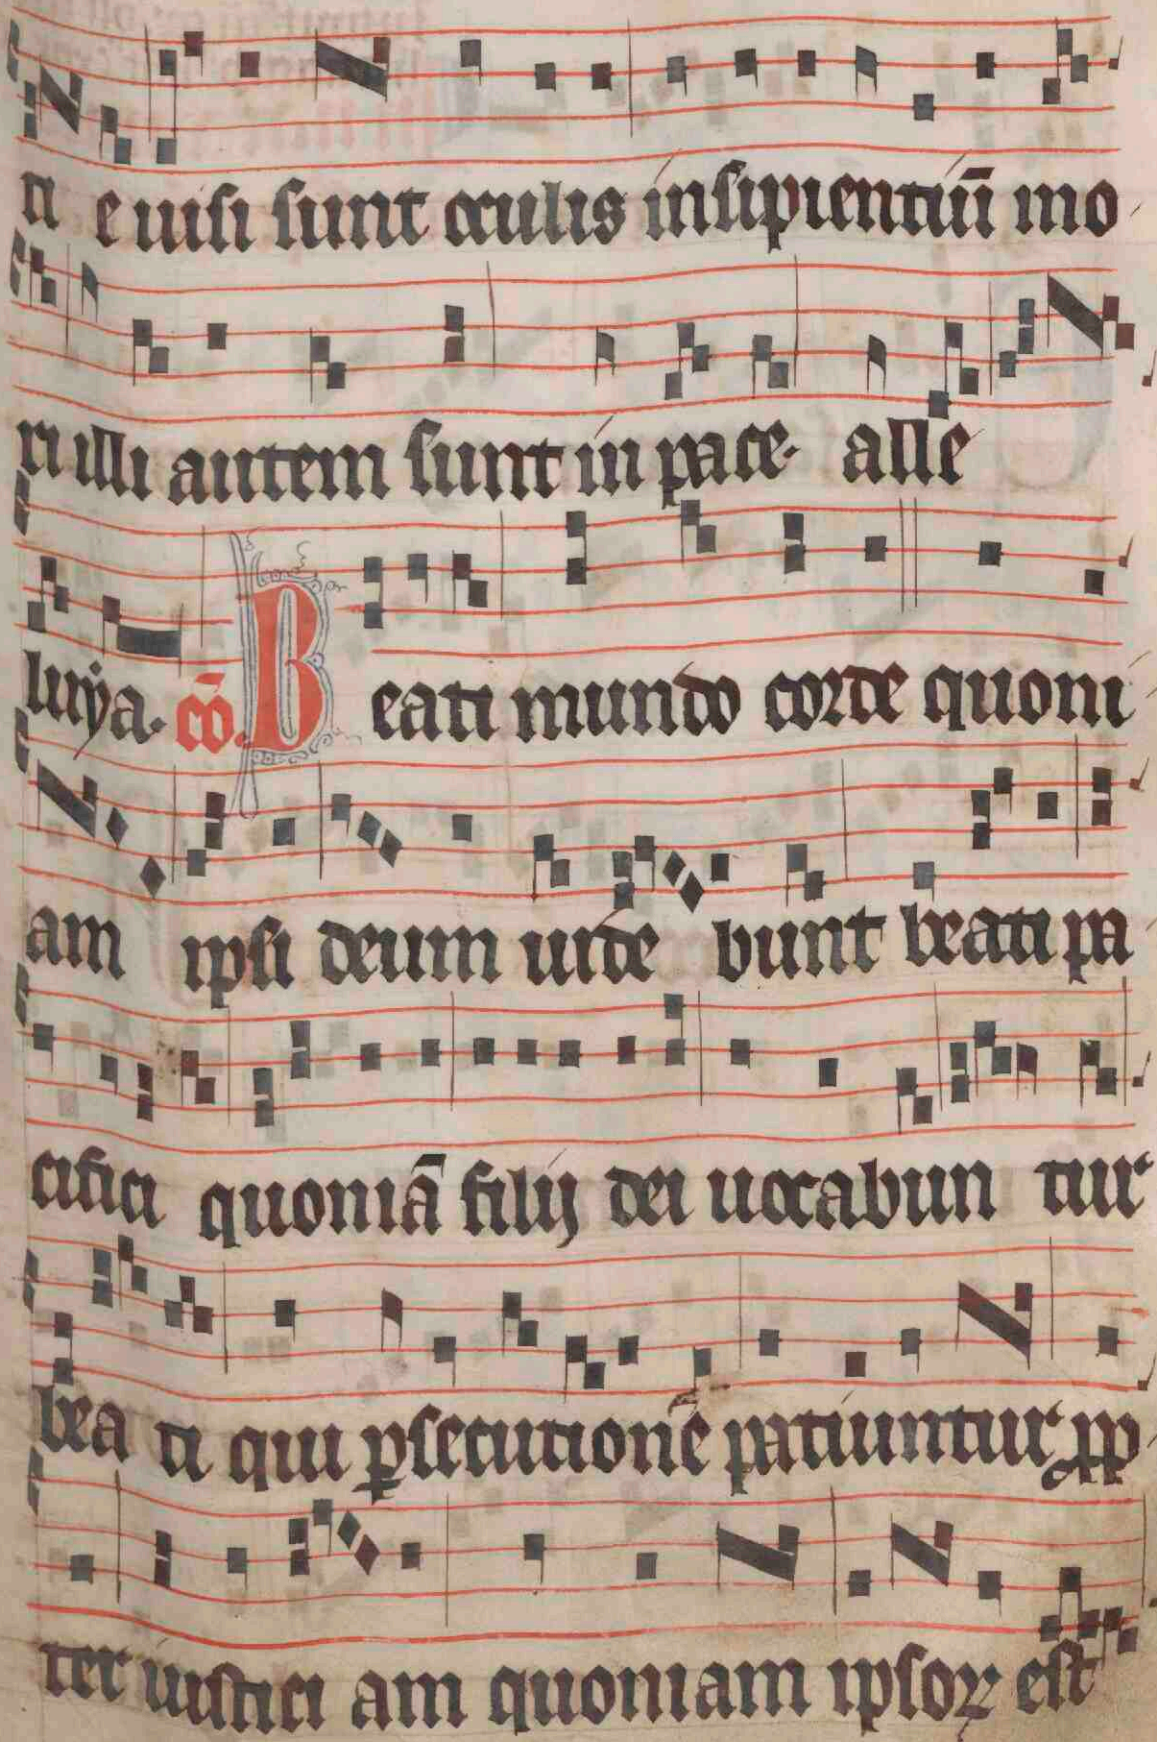 ti e uisi sunt oculis insipientiū mo
ri illi autem sunt in pace. alle
luya. cō. Beati mundo corde quoni
am ipsi deum uide bunt beati pa
cifici quoniā filij dei uocabun tur
bea ti qui ꝑsecutionē patiuntur prop
ter iustici am quoniam ipsoꝝ est